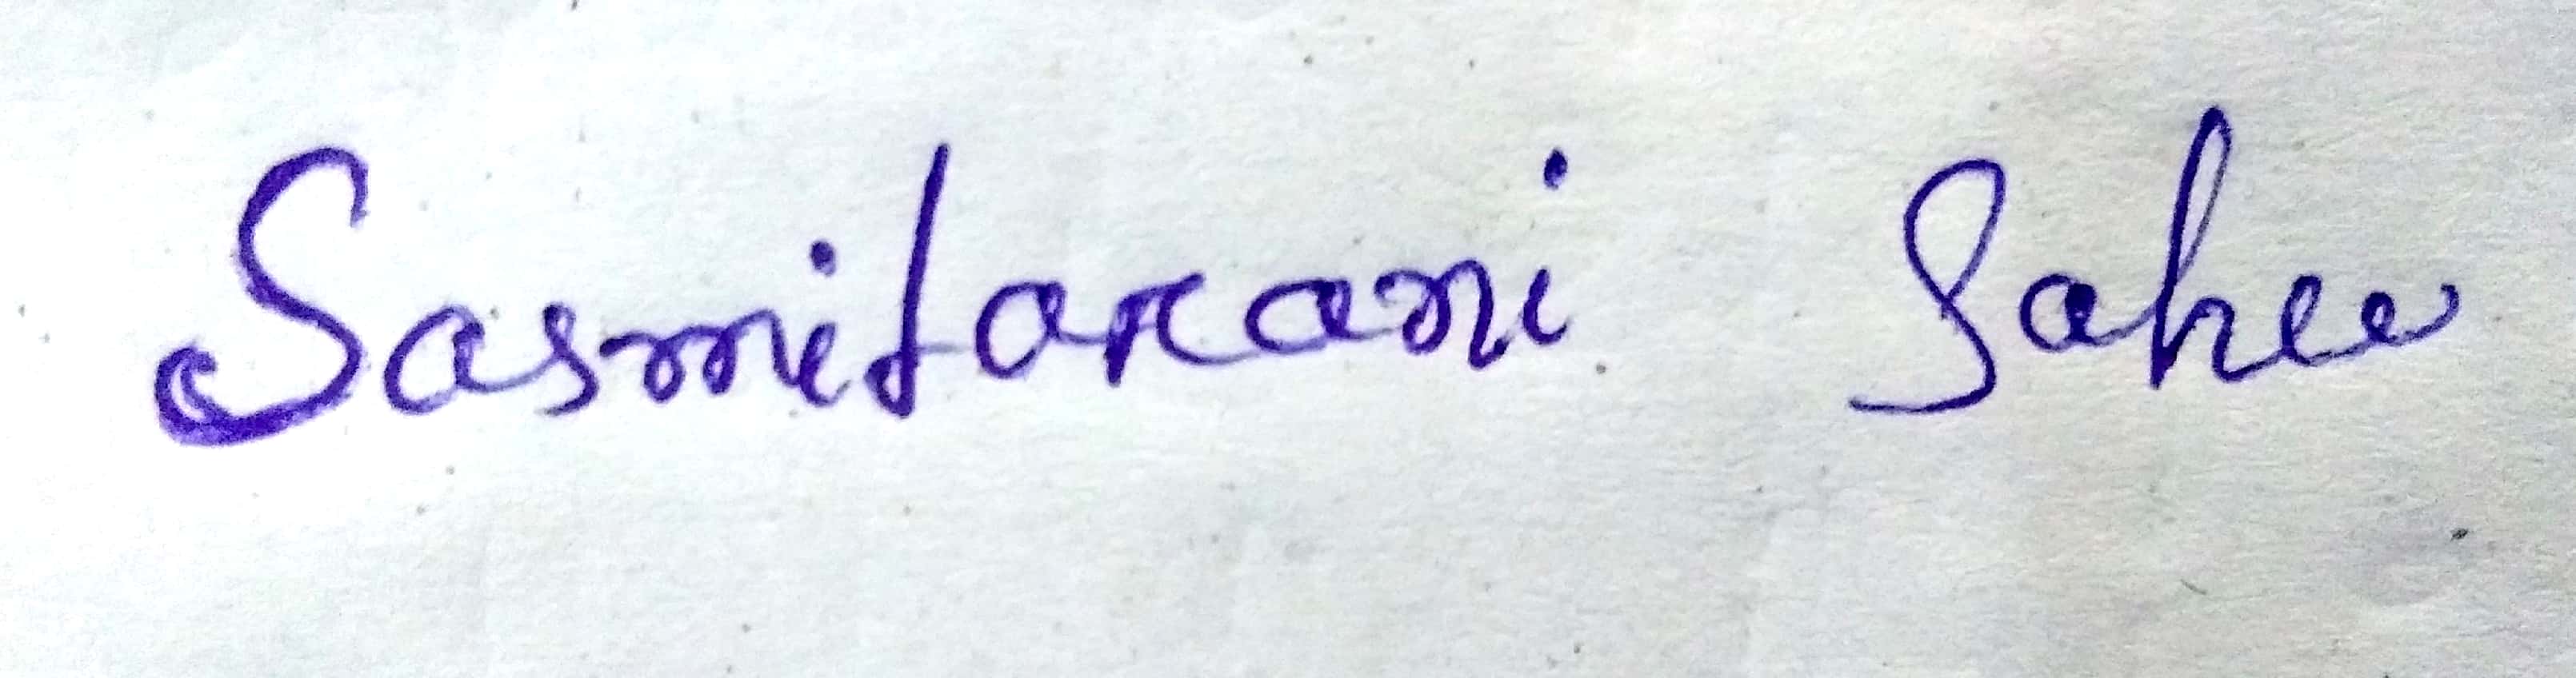 Sasmitarani Sahu